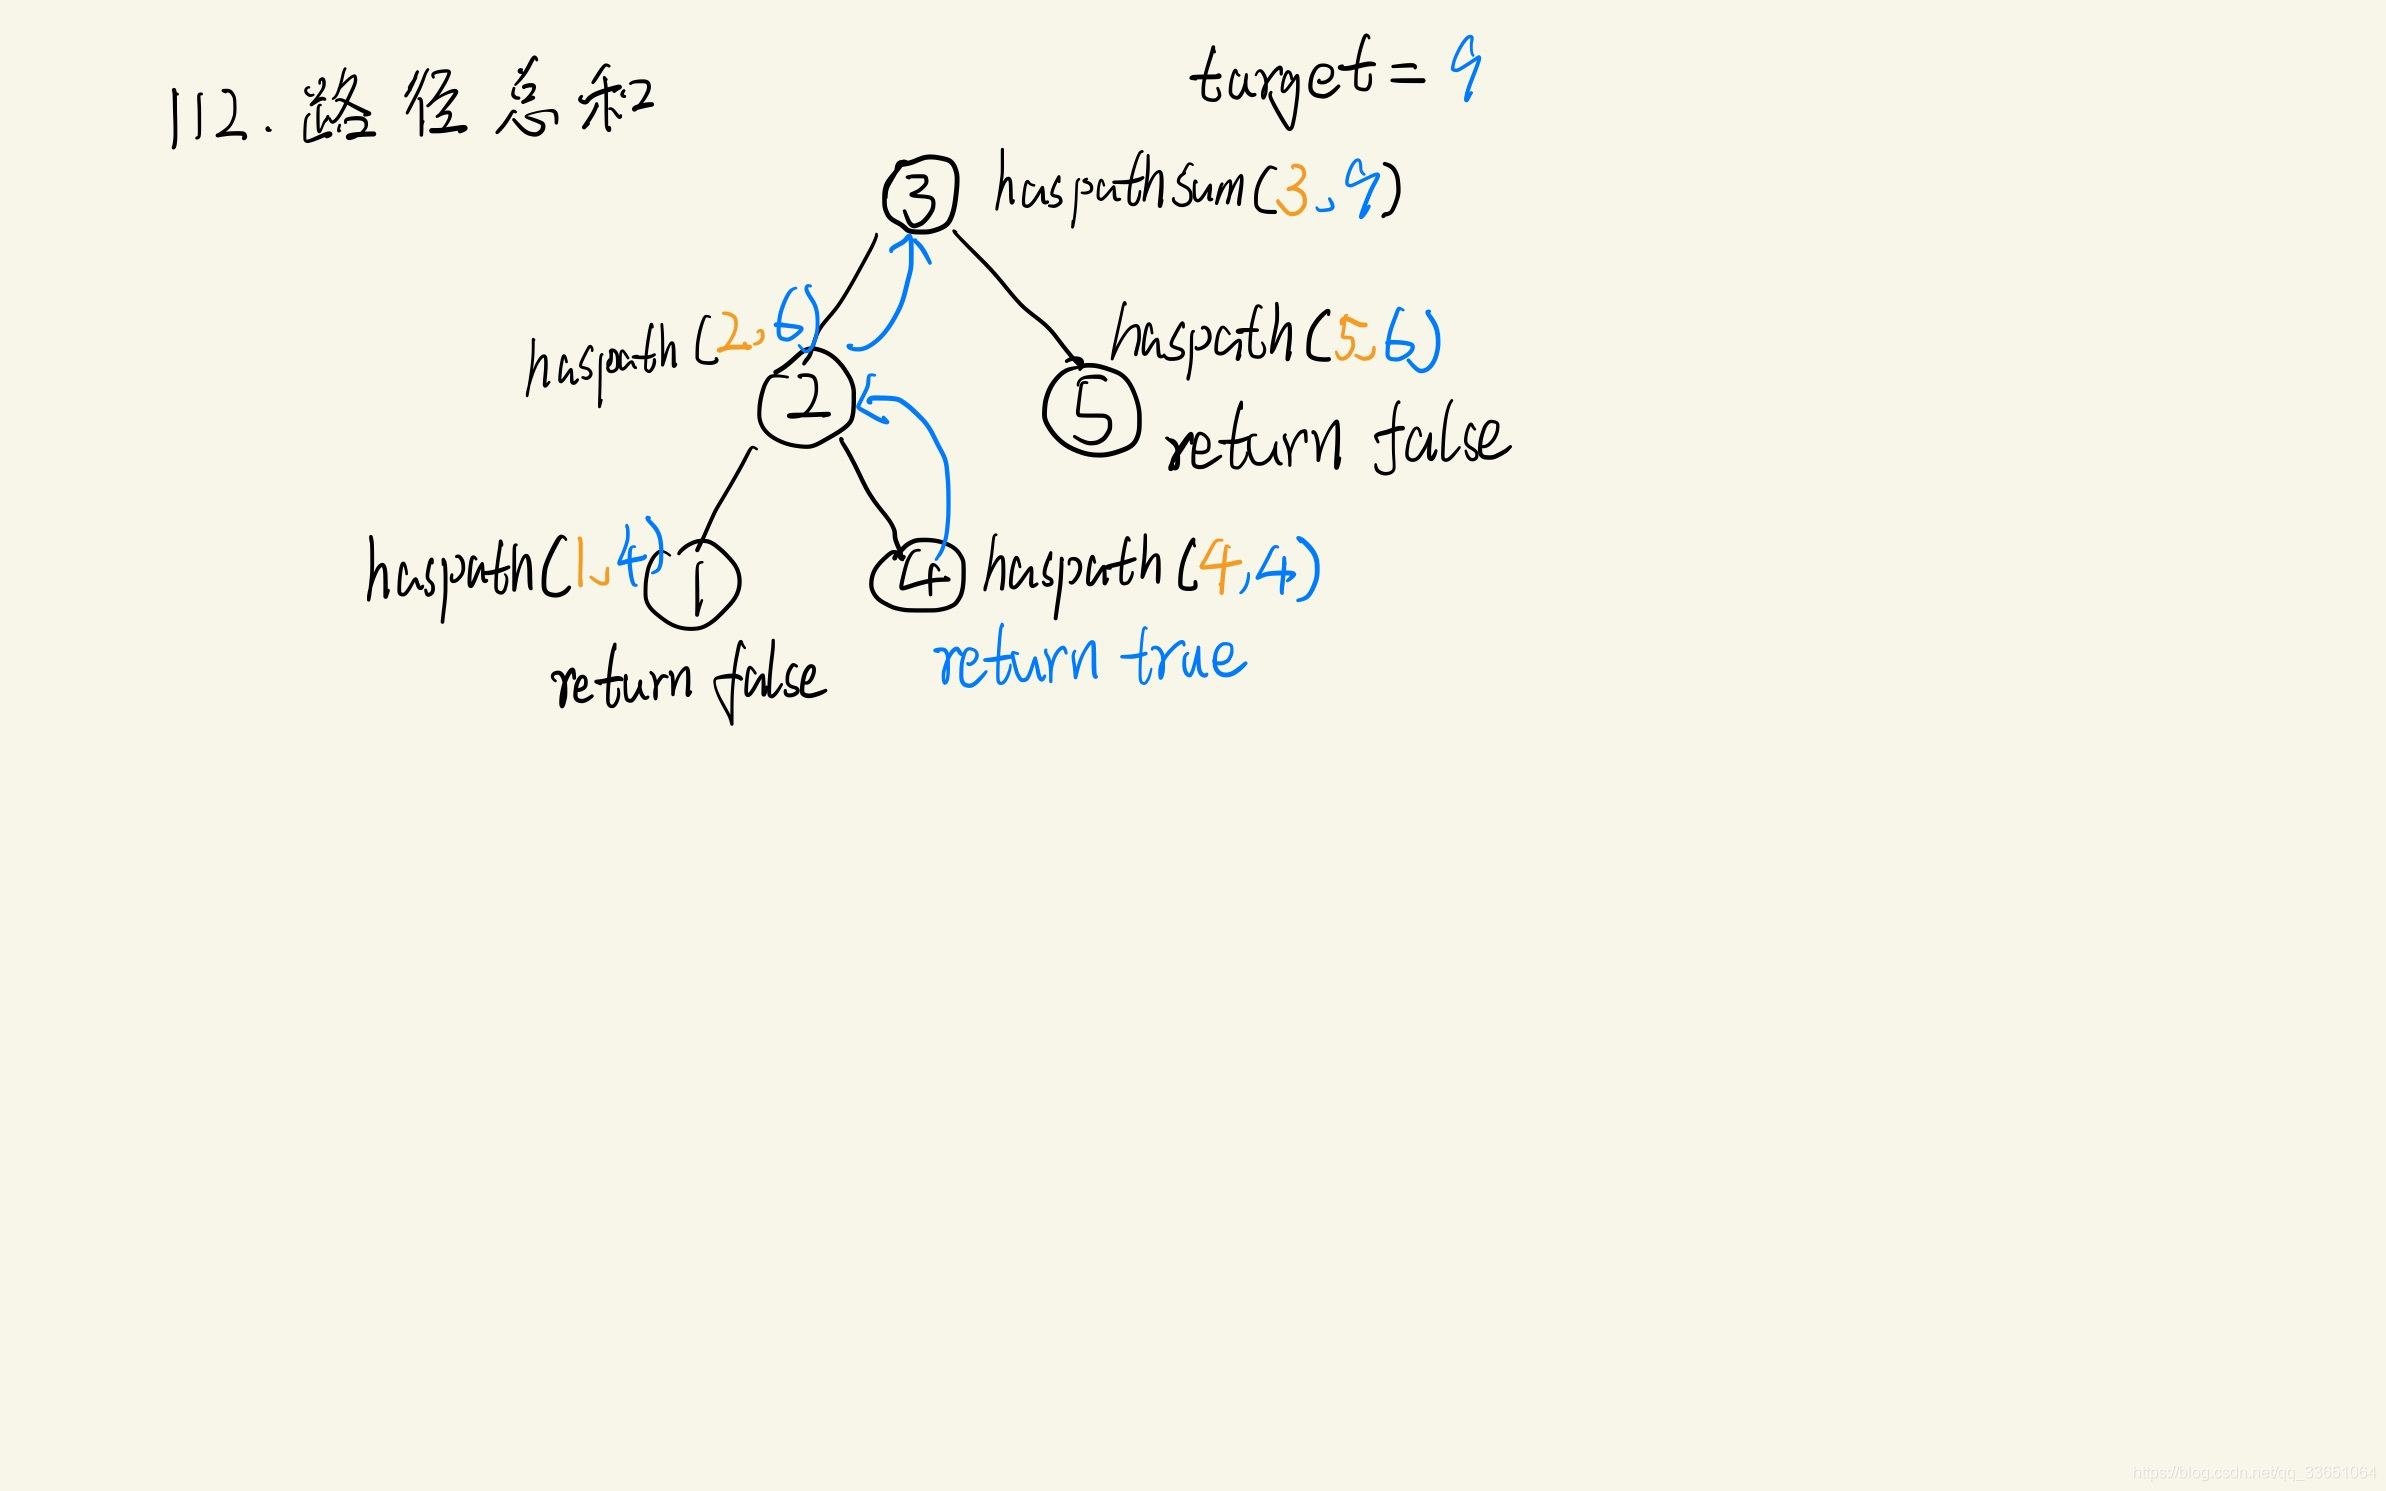 112. 路径总和
target = 9
3
haspathsum(3, 9)
haspath(2, 6)
2
haspath(5, 6)
5
return false
haspath(1, 4)
1
4
haspath(4, 4)
return false
return true
https://blog.csdn.net/qq_33651064